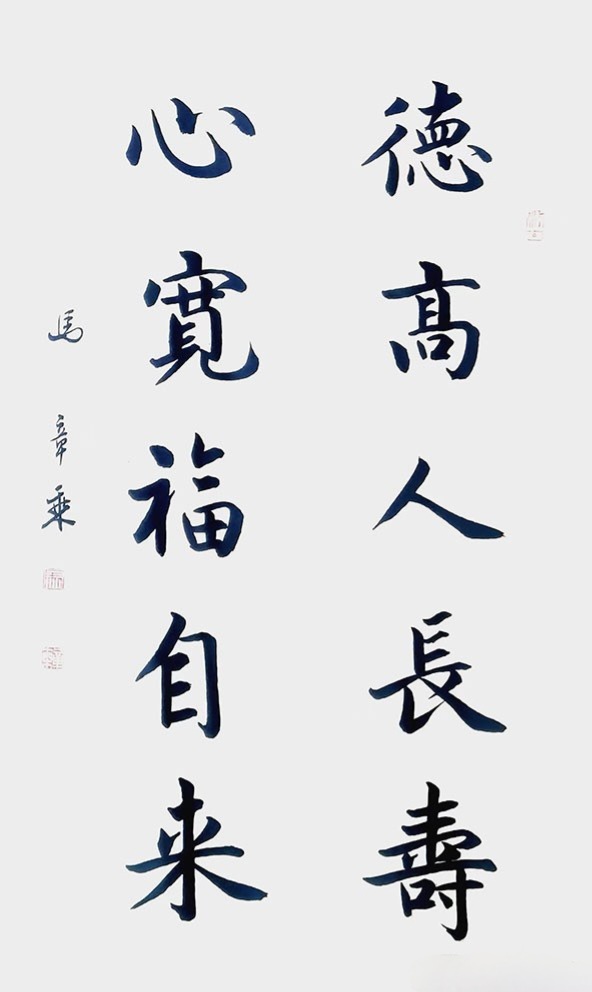 德高人長壽
心寬福自来
馬章乘